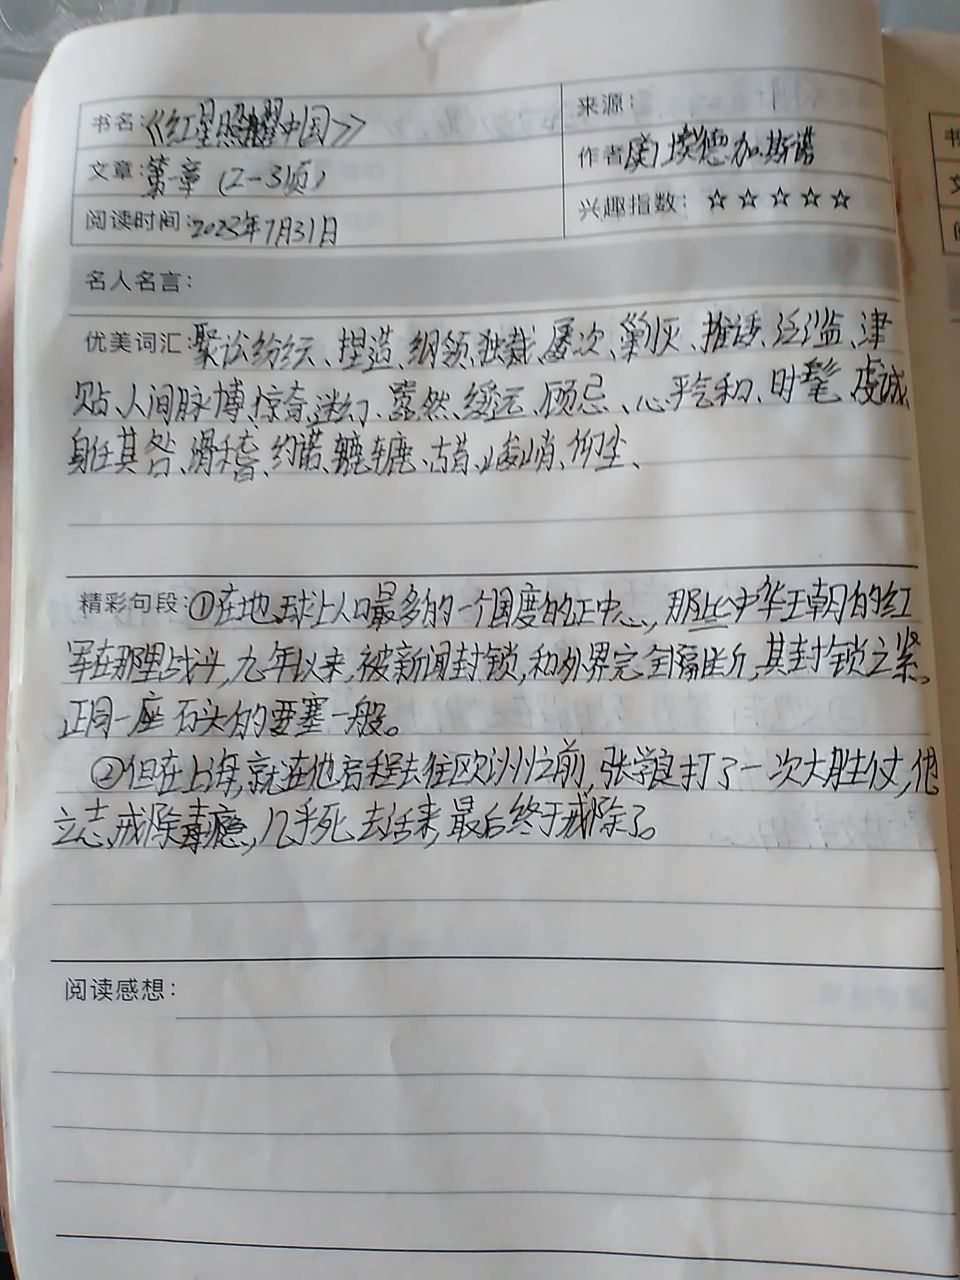 书名:《红星照耀中国》
来源:
文章:第一章(2-3页)
作者[美]埃德加.斯诺
阅读时间:2023年7月31日
兴趣指数: ☆ ☆ ☆ ☆ ☆
名人名言:
优美词汇:聚讼纷纭、捏造、纲领、独裁、屡次、剿灭、推诿、泛滥、津
贴、人间脉搏、惊奇、迷幻、蓦然、绥远、顾忌、心平气和、时髦、虔诚、
身任其咎、滑稽、约诺、辘轳、古昔、峻峭、仰尘、
精彩句段:①在地球上人口最多的一个国度的正中心,那些中华王朝的红
军在那里战斗,九年以来,被新闻封锁,和外界完全隔断,其封锁之紧。
正同一座石头的要塞一般。
②但在上海,就在他启程去往欧洲之前,张学良打了一次大胜仗,他
立志戒除毒瘾,几乎死去活来,最后终于戒除了。
阅读感想: